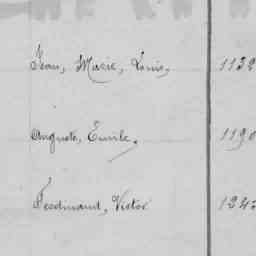 Jean, Marie, Louis, 1132
Auguste, Emile, 1190
Ferdinand, Victor